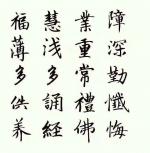 障深勤懺悔
業重常禮佛
慧浅多誦經
福薄多供养